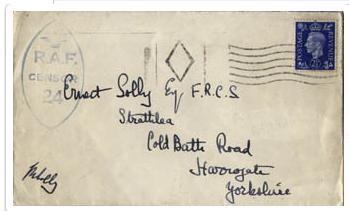 R.A.F.
CENSOR
24
POSTAGE
REVENUE
2½
Ernest Solly Esq F.R.C.S
Strathlea
Cold Bath Road
Harrogate
Yorkshire